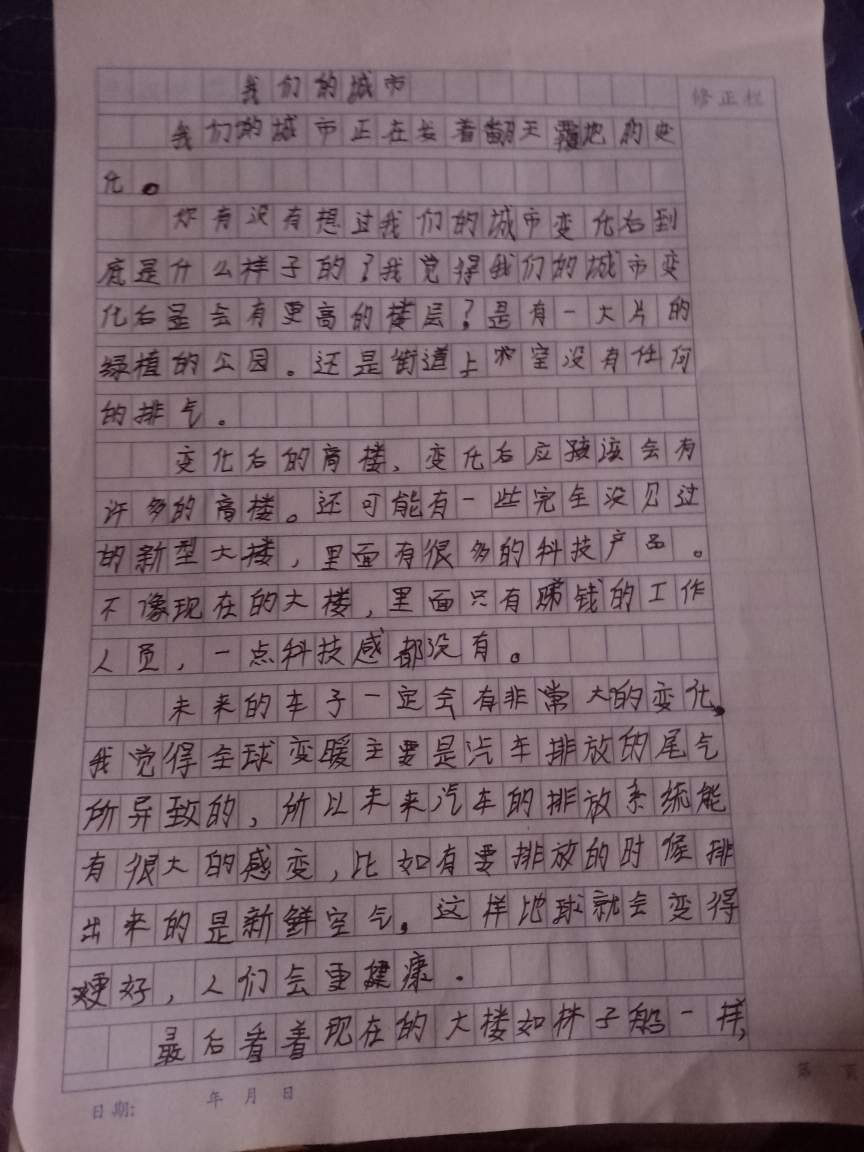 我们的城市
修正栏
我们的城市正在发着翻天覆地的变
化。
你有没有想过我们的城市变化后到
底是什么样子的?我觉得我们的城市变
化后是会有更高的楼层?是有一大片的
绿植的公园。还是街道上 室没有任何
的排气。
变化后的高楼,变化后应该会有
许多的高楼。还可能有一些完全没见过
的新型大楼,里面有很多的科技产品。
不像现在的大楼,里面只有赚钱的工作
人员,一点科技感都没有。
未来的车子一定会有非常大的变化,
我觉得全球变暖主要是汽车排放的尾气
所导致的,所以未来汽车的排放系统能
有很大的感变,比如有要排放的时候排
出来的是新鲜空气。这样地球就会变得
更好,人们会更健康.
最后看着现在的大楼如林子般一样,
日期: 年 月 日
第 页